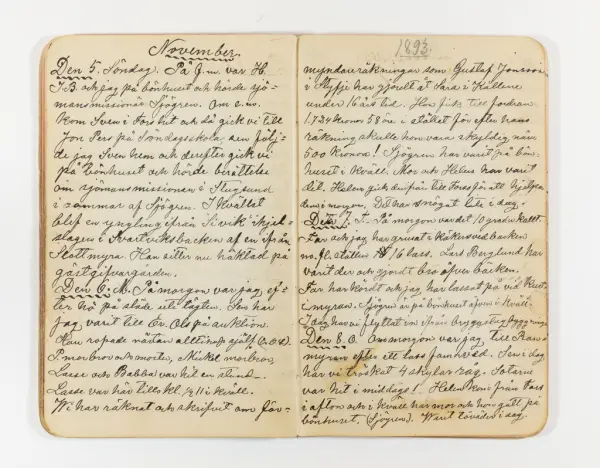 November.
Den 5. Söndag. På f.m. var H.
J.B. och jag på bönhuset och hörde sjö-
mansmissionär Sjögren. Om e.m.
kom Sven i Fors hit och då gick vi till
Jon Pers på Söndagsskola, sen följ-
de jag Sven hem och derefter gick vi
på bönhuset och hörde berättelse
om sjömansmissionen i
i sommar af Sjögren. I kvället
blef en yngling ifrån Sivik ihjel-
slagen i Svartviksbacken af en ifrån
Slottmyra. Han sitter nu häktad på
gästgifvargården.
Den 6. M. På morgon var jag ef-
ter hö på släde ute Sen har
jag varit till Er. Ols på auktion.
Han ropade nästan alltihop sjelf (E.O.S.)
P. morbror och moster, Nickel morbror,
Lasse och Babba var hit en stund.
Lasse var här tills kl. ½11 i kväll.
Wi har räknat och skrifvit om för-
1893.
myndareräkningar som Gustaf Jonsson
i Flyfji har gjordt åt Sara i Kallene
under 16 års tid. Hon fick till fordran
1,734 kronor 58 öre i stället för efter hans
räkning skulle hon vara skyldig när
500 kronor! Sjögren har varit på bön-
huset i kväll. Mor och Helena har varit
dit. Helena gick derifrån till Forss för att hjelpa
dem i morgon. Det har snögat lite i dag.
Den 7. T. På morgon var det 10 grader kallt.
Far och jag har grusat i Kåkersvedbacken
m.fl. ställen 16 lass. Lars Berglund har
varit der och gjordt bro öfver bäcken.
Far har kördt och jag har lassat på vid
myran. Sjögren är på bönhuset äfven i kväll.
I dag har vi flyttat in ifrån bryggstugbyggning
Den 8. O. Om morgon var jag till
myran efter ett lass famnved. Sen i dag
har vi tröskat 4 skylar råg. Sotarn
var hit i middags! Helena kom från Fors
i afton och i kväll har mor och hon gått på
bönhuset. (Sjögren). Warit töväder i dag.